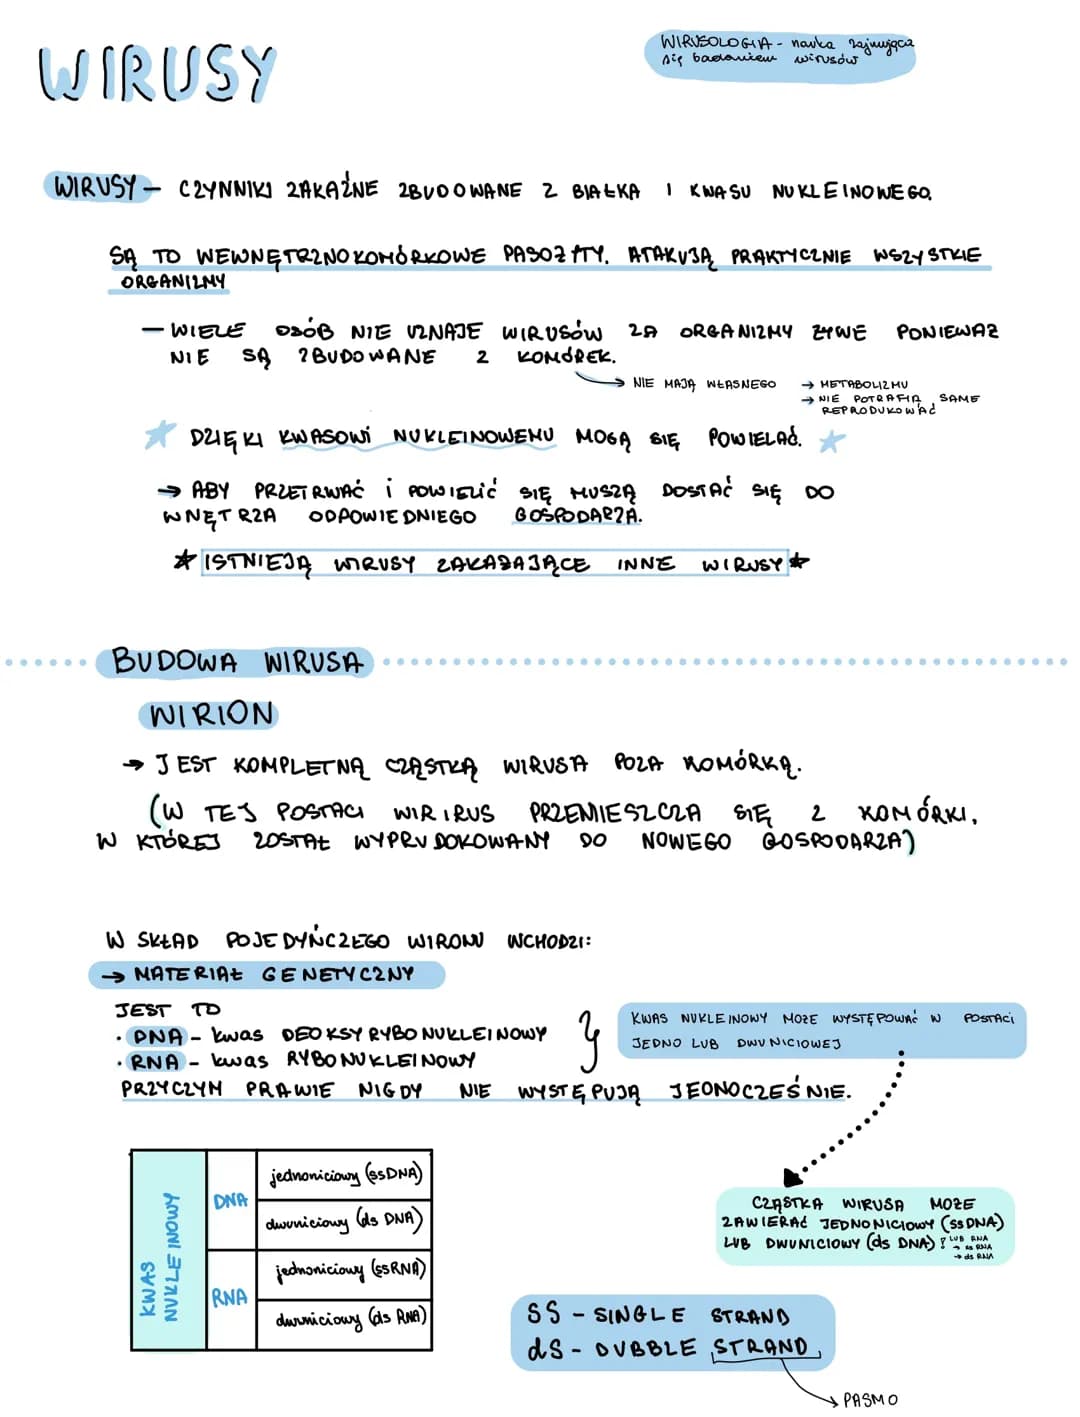 WIRUSY
WIRUSOLOGIA - nauka zajmująca
się badaniem wirusów
WIRUSY - CZYNNIKI ZAKAŹNE ZBUDOWANE Z BIAŁKA I KWASU NUKLEINOWEGO.
SĄ TO WEWNĘTRZNOKOMÓRKOWE PASOŻYTY. ATAKUJĄ PRAKTYCZNIE WSZYSTKIE
ORGANIZMY
- WIELE OSÓB NIE UZNAJE WIRUSÓW ZA ORGANIZMY ŻYWE PONIEWAŻ
NIE SĄ ZBUDOWANE Z KOMÓREK.
→ NIE MAJĄ WŁASNEGO → METABOLIZMU
→ NIE POTRAFIĄ SAME
REPRODUKOWAĆ
★ DZIĘKI KWASOWI NUKLEINOWEMU MOGĄ SIĘ POWIELAĆ. ★
→ ABY PRZETRWAĆ i POWIELIĆ SIĘ MUSZĄ DOSTAĆ SIĘ DO
WNĘTRZA ODPOWIEDNIEGO GOSPODARZA.
★ ISTNIEJĄ WIRUSY ZAKAŻAJĄCE INNE WIRUSY ★
BUDOWA WIRUSA
WIRION
→ JEST KOMPLETNĄ CZĄSTKĄ WIRUSA POZA KOMÓRKĄ.
(W TEJ POSTACI WIRIRUS PRZEMIESZCZA SIĘ Z KOMÓRKI,
W KTÓREJ ZOSTAŁ WYPRUDOKOWANY DO NOWEGO GOSPODARZA)
W SKŁAD POJEDYŃCZEGO WIRONU WCHODZI:
→ MATERIAŁ GENETYCZNY
JEST TO
· DNA - kwas DEOKSYRYBONUKLEINOWY
· RNA - kwas RYBONUKLEINOWY
KWAS NUKLEINOWY MOŻE WYSTĘPOWAĆ W POSTACI
JEDNO LUB DWUNICIOWEJ
PRZYCZYM PRAWIE NIGDY NIE WYSTĘPUJĄ JEDNOCZEŚNIE.
KWAS
NUKLEINOWY
DNA
jednoniciowy (ssDNA)
dwuniciowy (ds DNA)
RNA
jednoniciowy (ssRNA)
dwuniciowy (ds RNA)
CZĄSTKA WIRUSA MOŻE
ZAWIERAĆ JEDNONICIOWY (ssDNA)
LUB DWUNICIOWY (ds DNA) ? LUB RNA
→ ss RNA
→ ds RNA
SS - SINGLE STRAND
dS - DUBBLE STRAND
→ PASMO